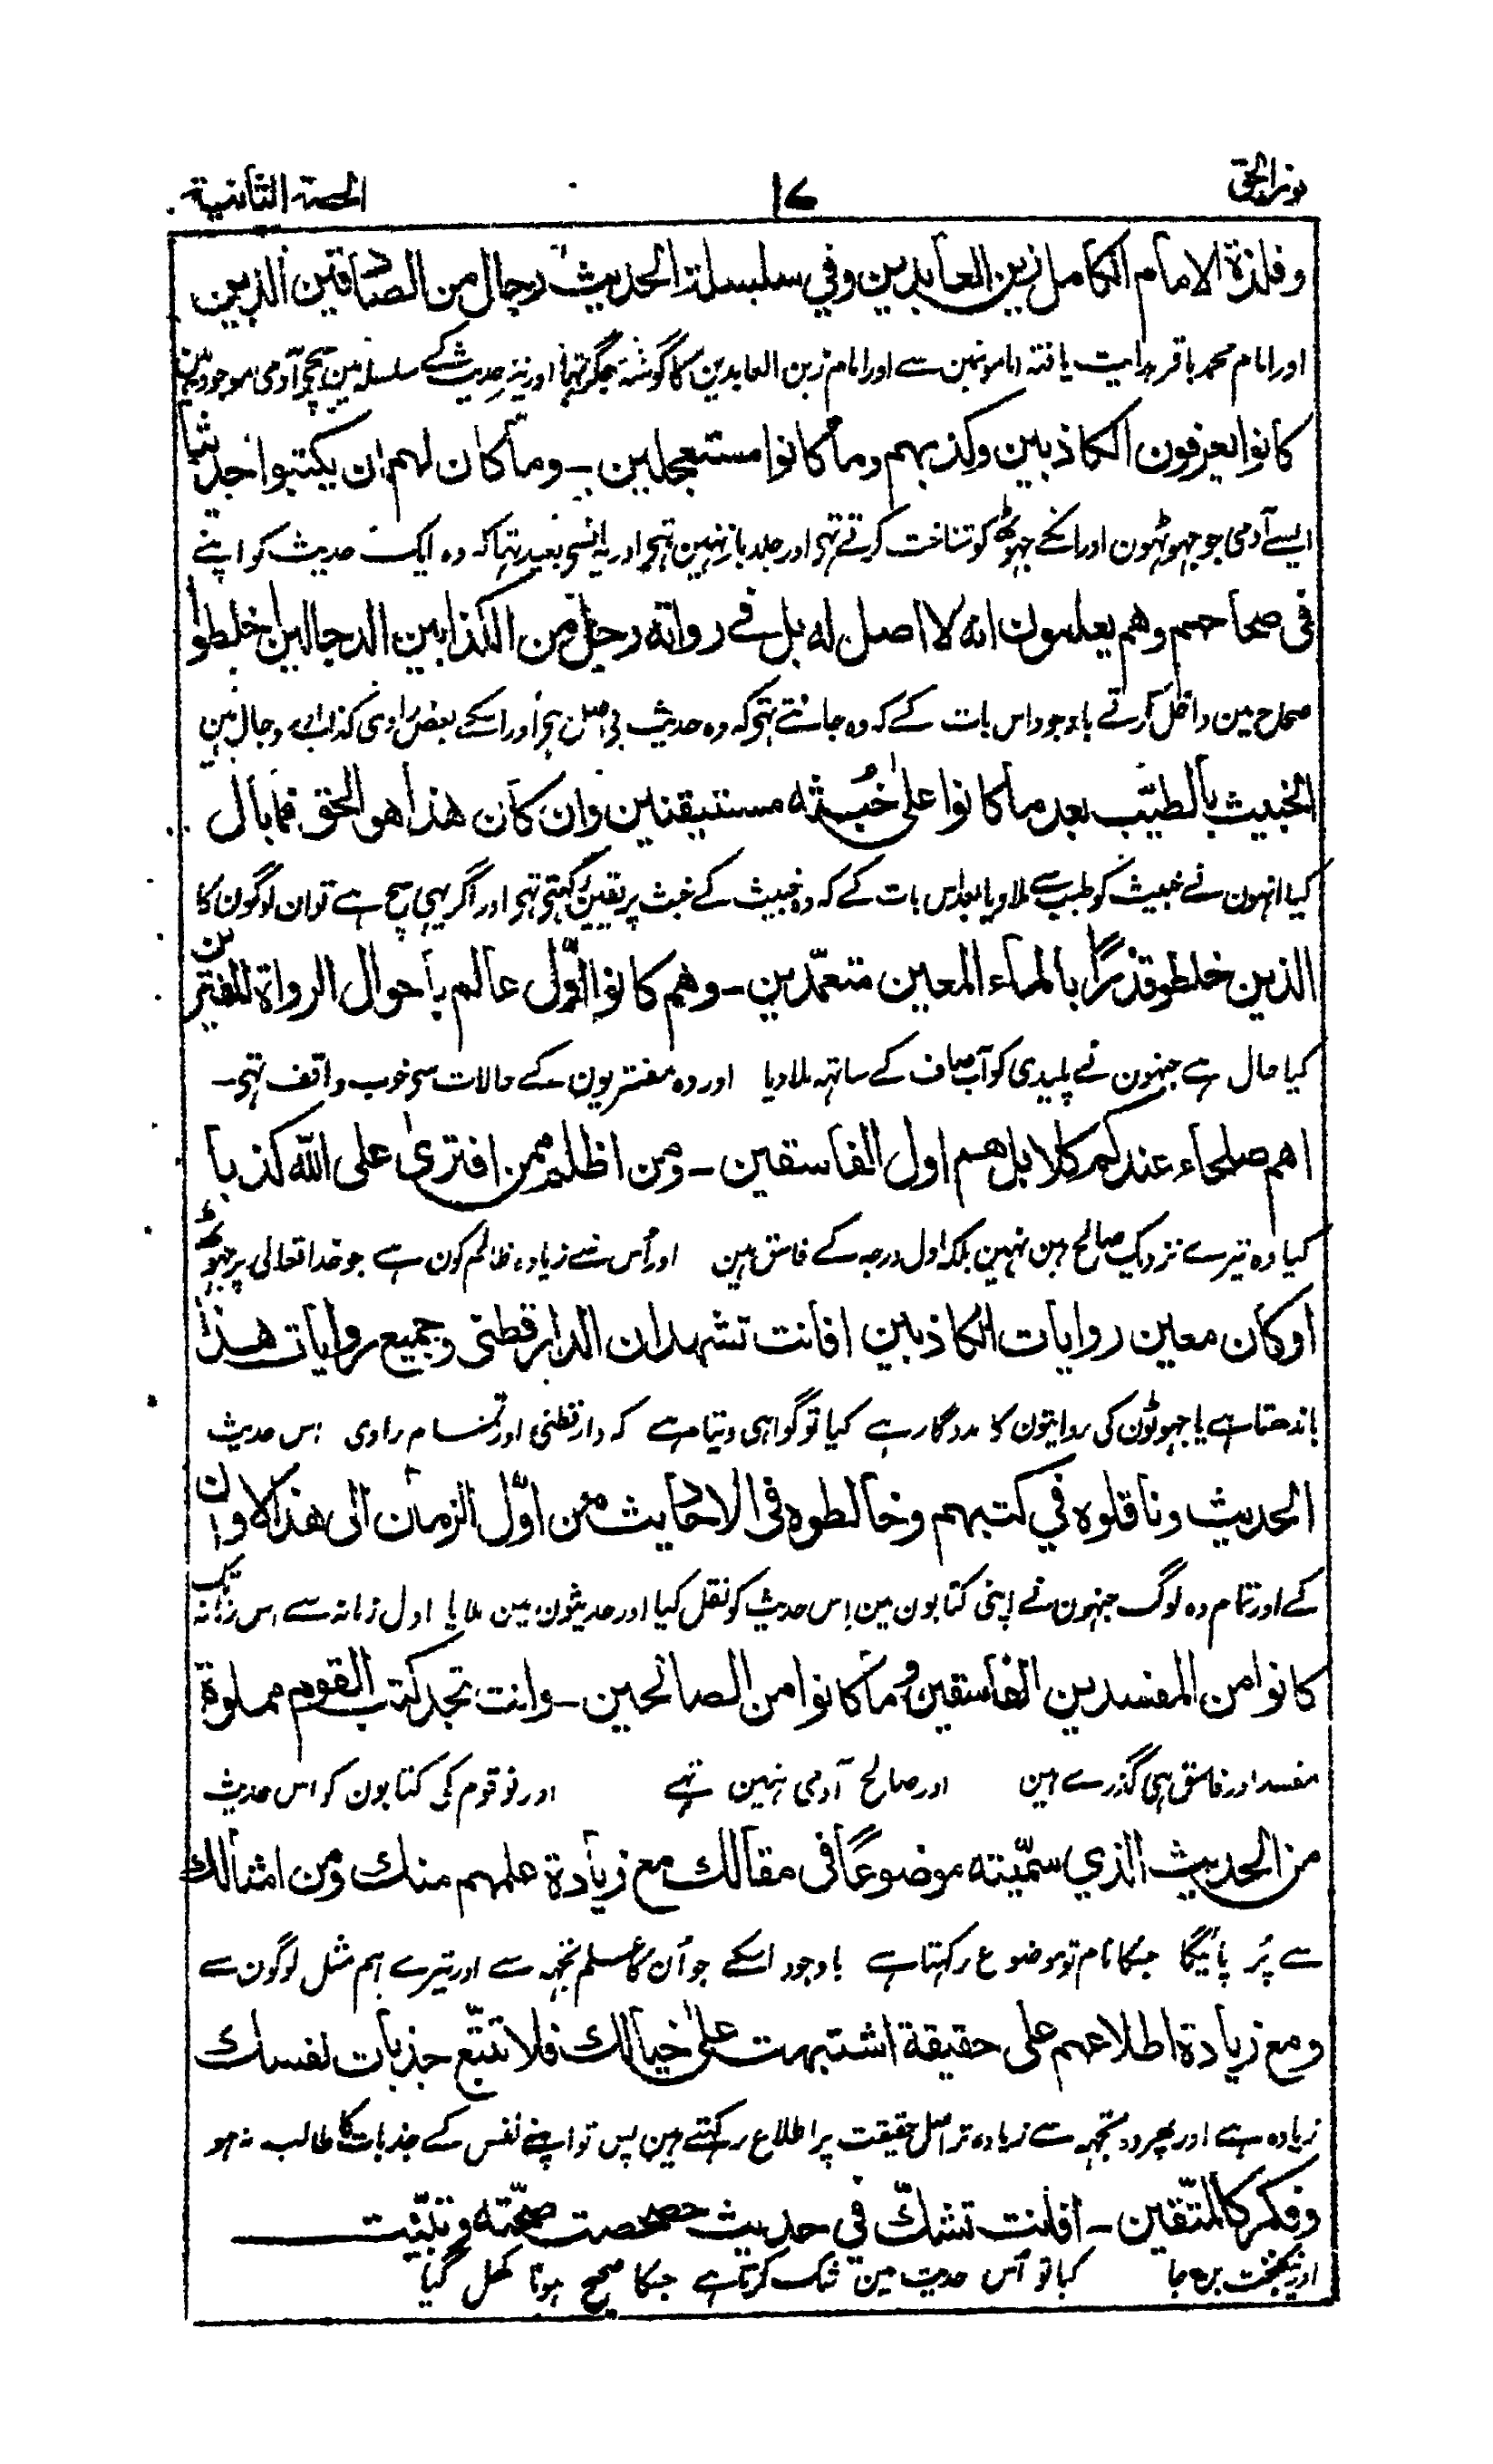 نور الحق
١٧
الحصة الثانية
وفلذة الامام الكامل زين العابدين وفي سلسلة الحديث رجال من الصادقين الذين
اور امام محمد باقر ہدایت یافتہ اماموں مین سے اور امام زین العابدین کا گوشۂ جگر تہا اور نیز حدیث کے سلسلہ مین سچے آدمی موجود ہین
كانوا يعرفون الكاذبين وكذبهم وما كانوا مستعجلين - وما كان لهم ان يكتبوا حديثا
ایسے آدمی جو جہوٹہون اور انکے جہوٹھ کو شناخت کرتے تہے اور جلد باز نہین تہے اور یہ انسے بعید تہا کہ وہ ایک حدیث کو اپنے
فى صحاحهم وهم يعلمون انه لا اصل له بل فے رواته رجل من الكذابين الدجالين خلطوا
صحاح مین داخل کرتے باوجود اس بات کے کہ وہ جانتے تہے کہ وہ حدیث بی اصل ہے اور اسکے بعض راوی کذاب اور دجال ہین
الخبيث بالطيّب بعد ما كانوا على خُبثه مستيقنين وان كان هذا هو الحق فما بال
کیا انہون نے خبیث کو طیب سے ملا دیا بعد اس بات کے کہ وہ خبیث کے خبث پر یقین رکہتے تہے اور اگر یہی سچ ہے تو ان لوگون کا
الذين خلطوا قذرًا بالماء المعين متعمّدين - وهم كانوا اوّل عالم بأحوال الرواة المفترين
کیا حال ہے جنہون نے پلیدی کو آب صاف کے ساتہہ ملا دیا اور وہ مفتریون کے حالات سے خوب واقف تہے -
اهم صلحاء عندكم كلا بل هم اول الفاسقين - ومن اظلم ممن افترى على الله كذبا
کیا وہ تیرے نزدیک صالح ہین نہین بلکہ اول درجہ کے فاسق ہین اور اُس سے زیادہ ظالم کون ہے جو خدا تعالی پر جہوٹ
او كان معين روايات الكاذبين افانت تشهد ان الدارقطنى وجميع روايات هذا
باندھتا ہے یا جہوٹون کی روایتون کا مددگار ہے کیا تو گواہی دیتا ہے کہ دارقطنی اور تمام راوی اس حدیث
الحديث وناقلوه في كتبهم وخالطوه فى الاحاديث من اوّل الزمان الى هذا الاوان
کے اور تمام وہ لوگ جنہون نے اپنی کتابون مین اِس حدیث کو نقل کیا اور حدیثون مین ملایا اول زمانہ سے اس زمانہ تک
كانوا من المفسدين الفاسقين وما كانوا من الصالحين - وانت تجد كتب القوم مملوة
مفسد اور فاسق ہی گذرے ہین اور صالح آدمی نہین تہے اور تو قوم کی کتابون کو اس حدیث
من الحديث الذي سمّيته موضوعًا فى مقالك مع زيادة علمهم منك ومن امثالك
سے پُر پائیگا جسکا نام تو موضوع رکہتا ہے باوجود اسکے جو اُن کا علم تجہہ سے اور تیرے ہم مثل لوگون سے
ومع زيادة اطلاعهم على حقيقة اشتبهت على خيالك فلا تتّبع جذبات نفسك
زیادہ ہے اور پہر وہ تجہہ سے زیادہ تر اصل حقیقت پر اطلاع رکہتے ہین پس تو اپنے نفس کے جذبات کا طالب نہ ہو
وفكر كالمتّقين - افانت تشكّ في حديث حصحصت صحّته وتبيّنت
اور نیکبخت بن جا کیا تو اُس حدیث مین شک کرتا ہے جسکا صحیح ہونا کھل گیا